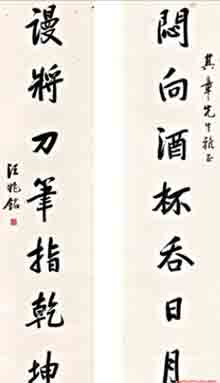 其章先生雅正
悶向酒杯吞日月
谩將刀筆指乾坤
汪兆銘